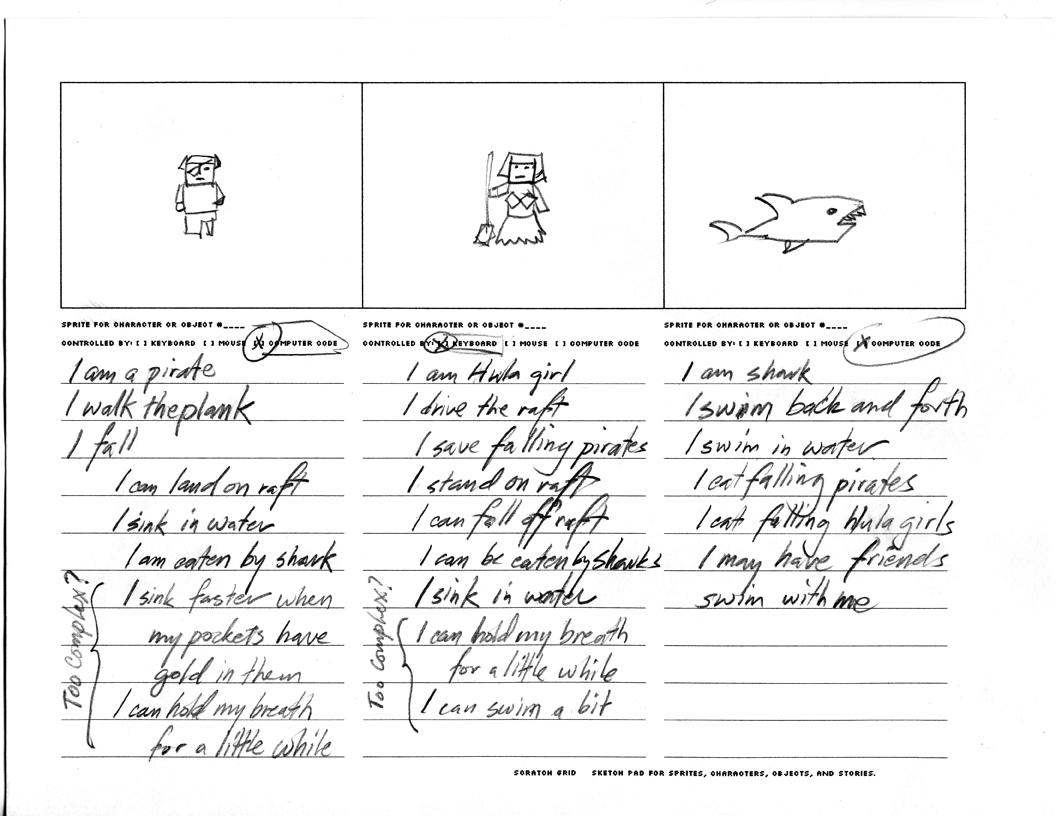 SPRITE FOR CHARACTER OR OBJECT #____
CONTROLLED BY: [ ] KEYBOARD [ ] MOUSE [X] COMPUTER CODE
I am a pirate
I walk the plank
I fall
I can land on raft
I sink in water
I am eaten by shark
Too Complex?
I sink faster when
my pockets have
gold in them
I can hold my breath
for a little while
SPRITE FOR CHARACTER OR OBJECT #____
CONTROLLED BY: [X] KEYBOARD [ ] MOUSE [ ] COMPUTER CODE
I am Hula girl
I drive the raft
I save falling pirates
I stand on raft
I can fall off raft
I can be eaten by sharks
I sink in water
Too Complex?
I can hold my breath
for a little while
I can swim a bit
SPRITE FOR CHARACTER OR OBJECT #____
CONTROLLED BY: [ ] KEYBOARD [ ] MOUSE [X] COMPUTER CODE
I am shark
I swim back and forth
I swim in water
I eat falling pirates
I eat falling Hula girls
I may have friends
swim with me
SCRATCH GRID SKETCH PAD FOR SPRITES, CHARACTERS, OBJECTS, AND STORIES.